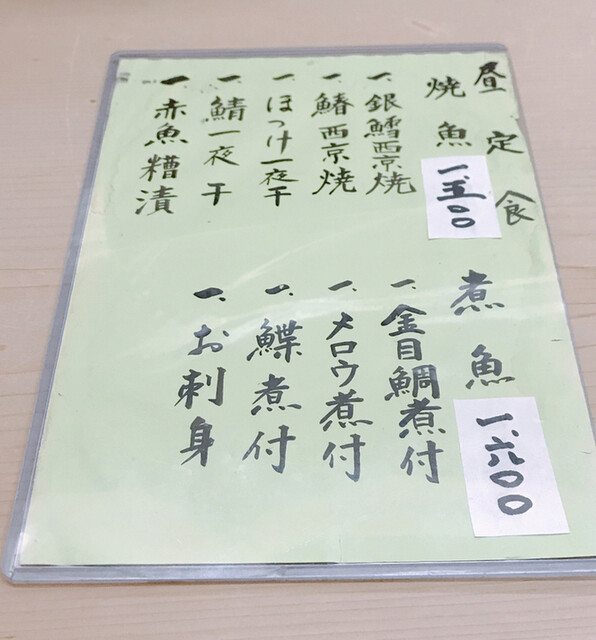 昼定食
焼魚 一、五〇〇
一、銀鱈西京焼
一、鰆西京焼
一、ほっけ一夜干
一、鯖一夜干
一、赤魚糟漬
煮魚 一、六〇〇
一、金目鯛煮付
一、メロウ煮付
一、鰈煮付
一、お刺身